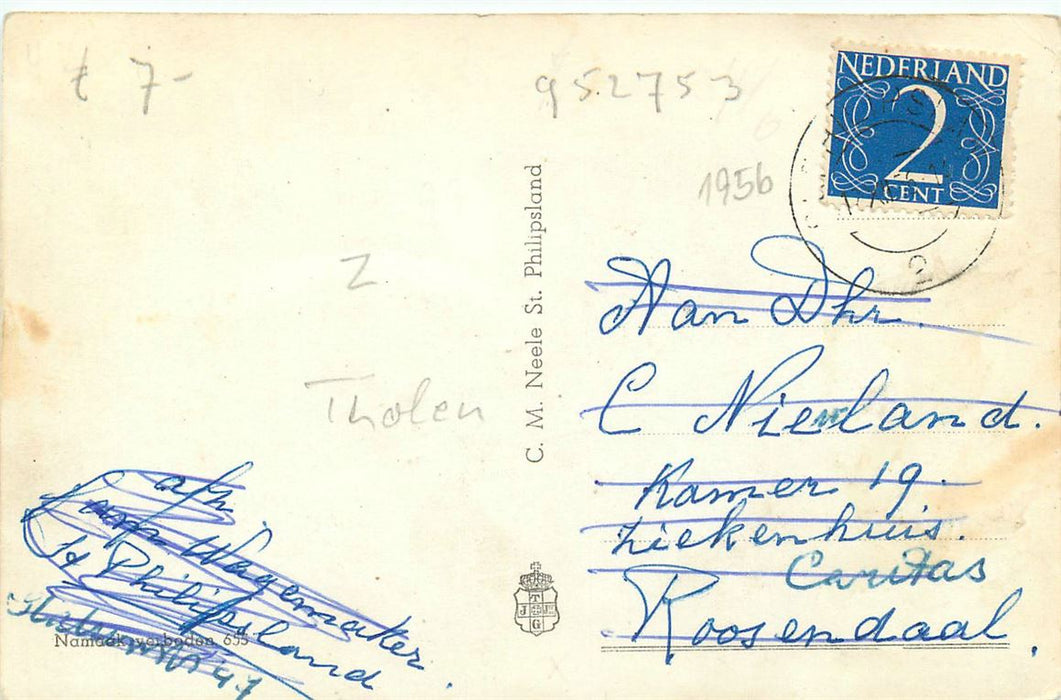 t 7-
952753
NEDERLAND
2
CENT
1956
Z
Tholen
C. M. Neele St. Philipsland
Aan Dhr.
C Nieland.
Kamer 19.
ziekenhuis.
Caritas
Roosendaal.
afz
Wagemaker
St Philipsland
Namaak verboden 655